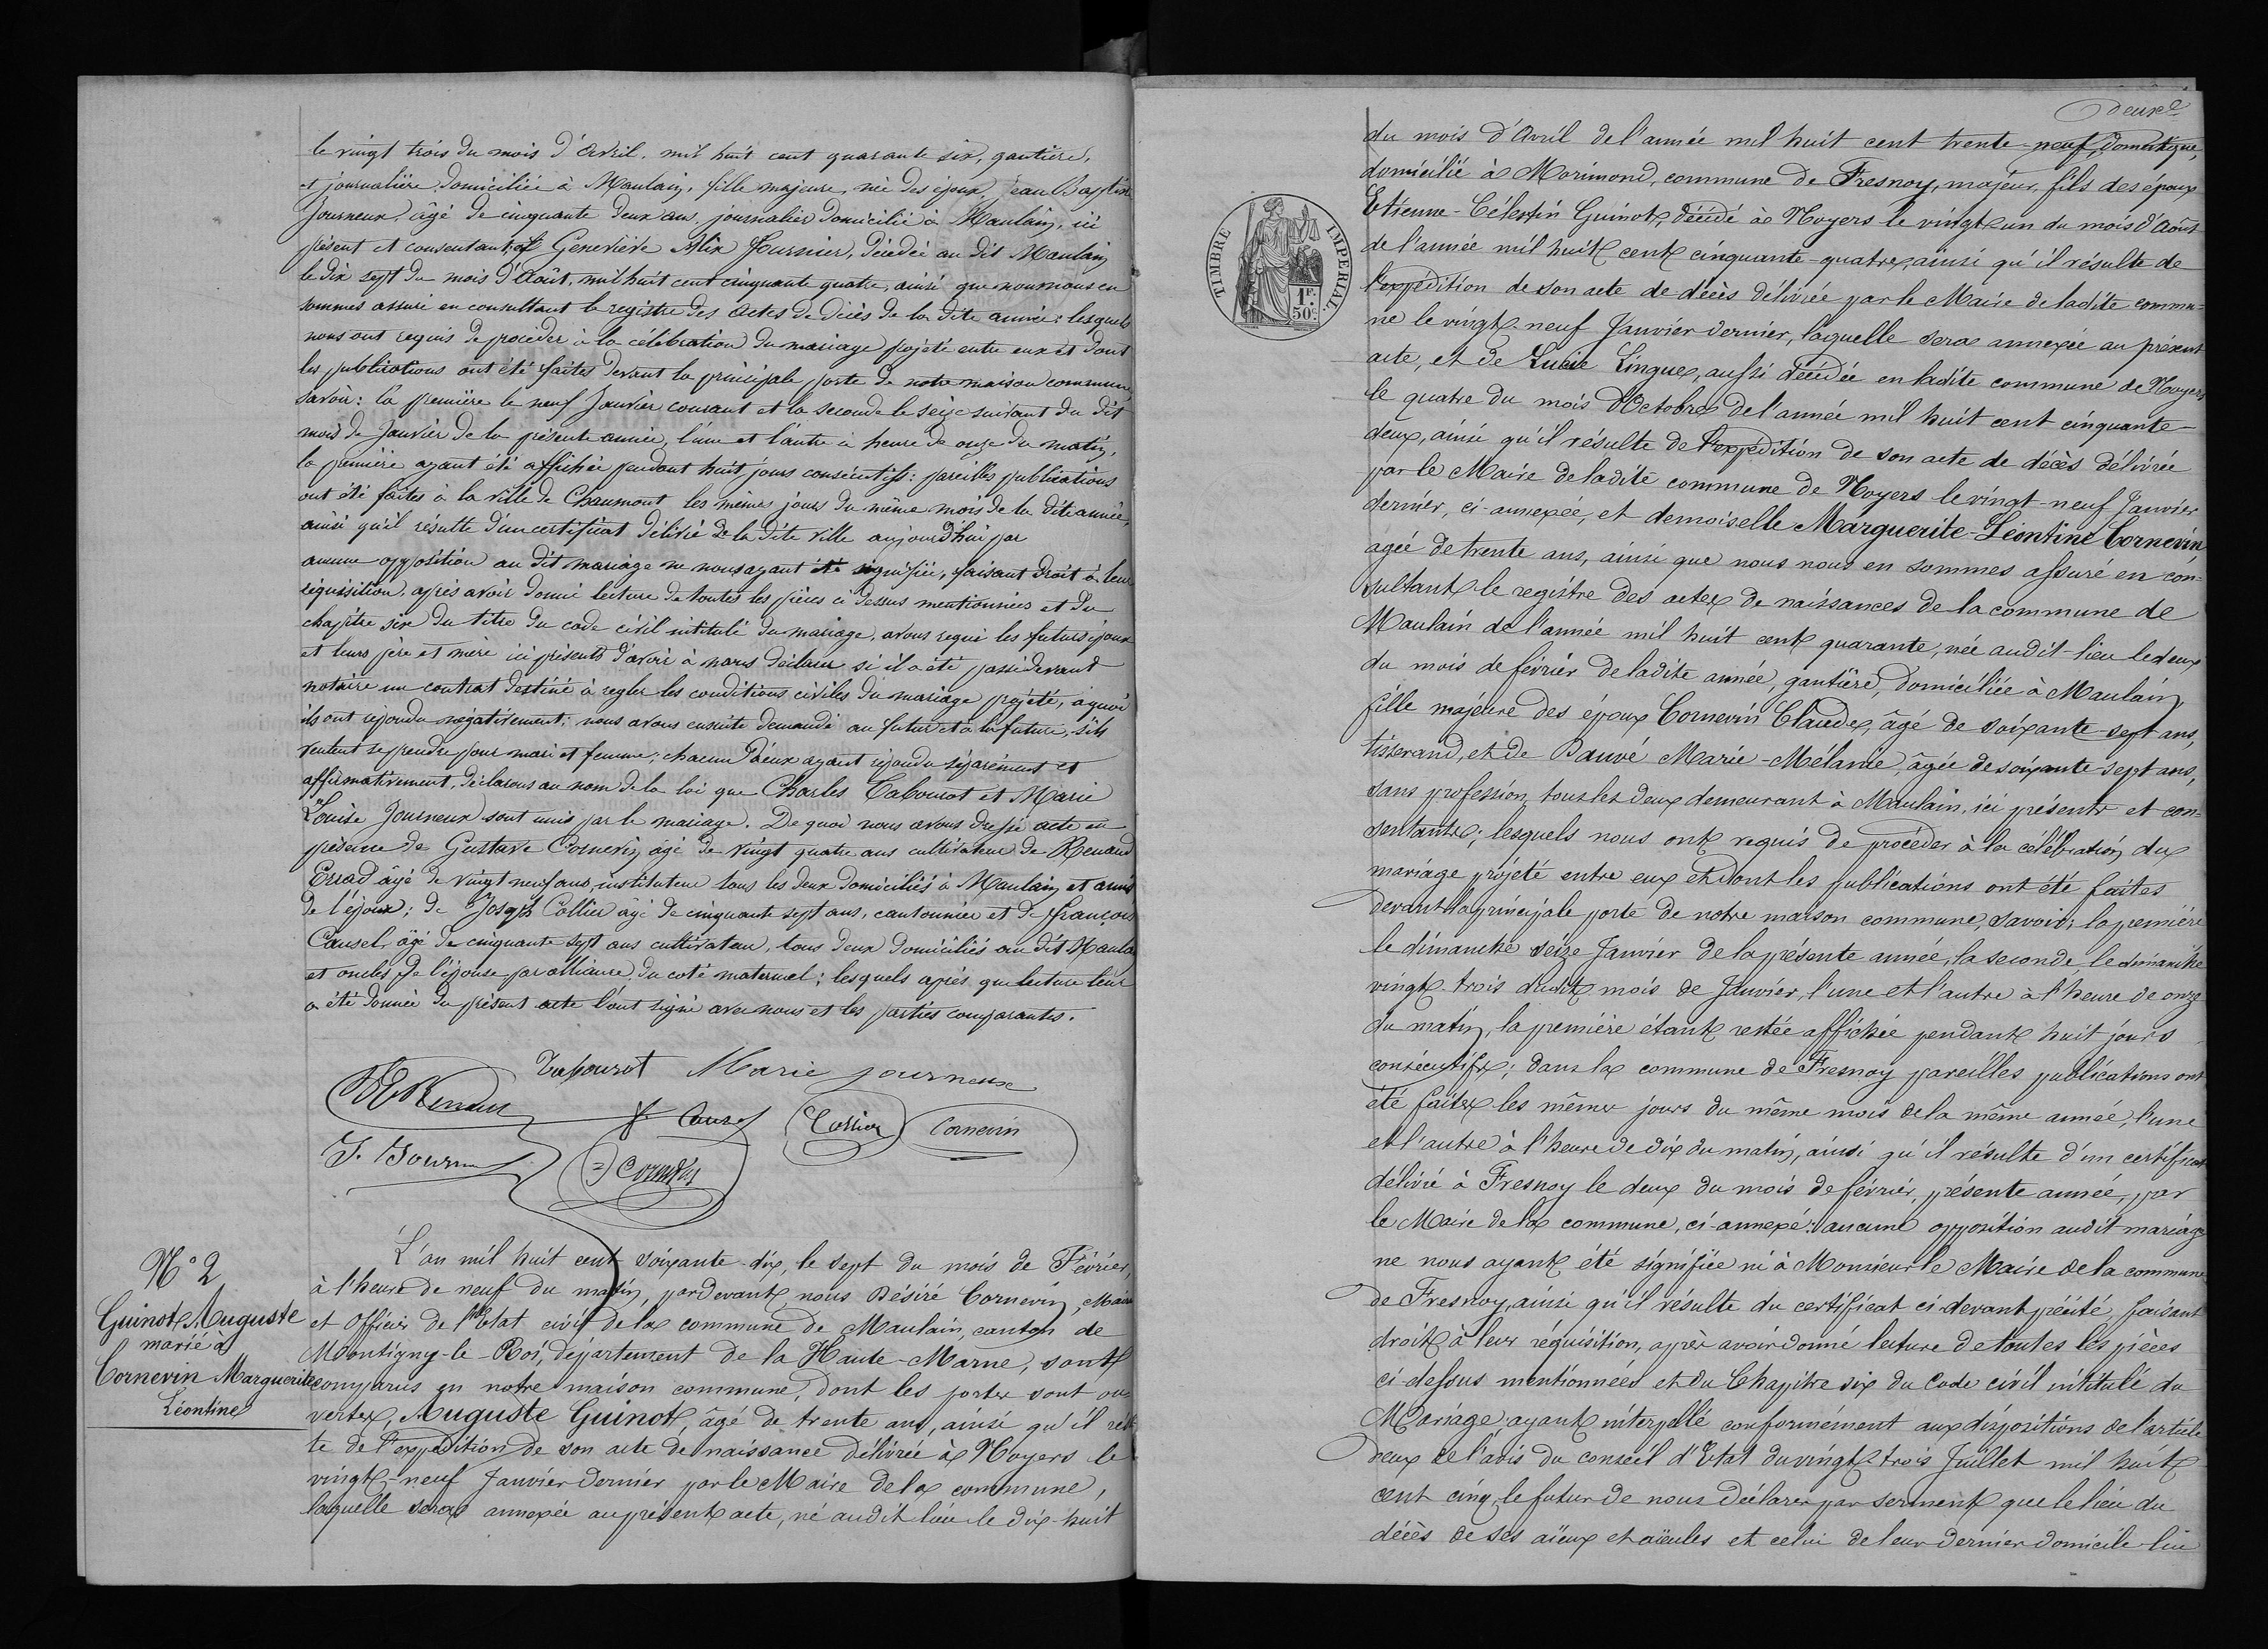 le vingt trois du mois d'Avril, mil huit cent quarante six, gantière,
et journalière domiciliée à Maulain, fille majeure, née des époux Jean Baptiste
Journeux, âgé de cinquante deux ans, journalier domicilié à Maulain, ici
présent et consentant, et Geneviève Alix Fournier, décédée au dit Maulain
le dix sept du mois d'Août, mil huit cent cinquante quatre, ainsi que nous nous en
sommes assuré en consultant le registre des actes de décès de la dite année: lesquels
nous ont requis de procéder à la célébration du mariage projeté entre eux et dont
les publications ont été faites devant la principale porte de notre maison commune,
savoir: la première le neuf Janvier courant et la seconde le seize suivant du dit
mois de Janvier de la présente année, l'une et l'autre à heure de onze du matin,
la première ayant été affichée pendant huit jours consécutifs: pareilles publications
ont été faites à la ville de Chaumont les mêmes jours du même mois de la dite année,
ainsi qu'il résulte d'un certificat délivré de la dite ville aujourd'hui par
aucune opposition au dit mariage ne nous ayant été signifiée, faisant droit à leur
réquisition, après avoir donné lecture de toutes les pièces ci dessus mentionnées et du
chapitre six du titre du code civil intitulé du mariage, avons requis les futurs époux
et leurs père et mère ici présents d'avoir à nous déclarer si il a été passé devant
notaire un contrat destiné à regler les conditions civiles du mariage projeté, à quoi
ils ont répondu négativement; nous avons ensuite demandé au futur et à la future, s'ils
veulent se prendre pour mari et femme; chacun d'eux ayant répondu séparément et
affirmativement, déclarons au nom de la loi que Charles Tabourot et Marie
Louise Journeux sont unis par le mariage. De quoi nous avons dressé acte en
présence de Gustave Cornevin âgé de vingt quatre ans cultivateur de Renaud
Errad âgé de vingt neuf ans, instituteur tous les deux domiciliés à Maulain et amis
de l'époux; de Joseph Collier âgé de cinquante sept ans, cantonnier et de François
Causel, âgé de cinquante sept ans cultivateur, tous deux domiciliés au dit Maulain
et oncles de l'épouse par alliance, du coté maternel; lesquels après que lecture leur
a été donnée du présent acte l'ont signé avec nous et les parties comparantes.
Tabourot Marie journeux
F. Causel Cornevin
J. Journeux D Cornevin
N° 2
Guinot Auguste
marié à
Cornevin Marguerite
Léontine
L'an mil huit cent soixante-dix, le sept du mois de Février,
à l'heure de neuf du matin, pardevant nous Désiré Cornevin, Maire
et Officier de l'Etat civil de la commune de Maulain, canton de
Montigny-le-Roi, département de la Haute-Marne, sont
comparus en notre maison commune, dont les portes sont ou-
vertes, Auguste Guinot, âgé de trente ans, ainsi qu'il résul
te de l'expédition de son acte de naissance délivrée à Noyers le
vingt-neuf Janvier dernier par le Maire de la commune,
laquelle sera annexée au présent acte, né audit lieu le dix-huit
deuxe
du mois d'Avril de l'année mil huit cent trente-neuf, domestique,
domicilié à Morimond, commune de Fresnoy, majeur, fils des époux
Etienne-Célestin Guinot, décédé à Noyers le vingt-un du mois d'Août
de l'année mil huit cent cinquante-quatre, ainsi qu'il résulte de
l'expédition de son acte de décès délivrée par le Maire de ladite commu-
ne le vingt-neuf Janvier dernier, laquelle sera annexée au présent
acte, et de Lucie Lingue, aussi décédée en ladite commune de Noyers
le quatre du mois d'Octobre de l'année mil huit cent cinquante-
deux, ainsi qu'il résulte de l'expédition de son acte de décès délivrée
par le Maire de ladite commune de Noyers le vingt-neuf Janvier
dernier, ci-annexée, et demoiselle Marguerite-Léontine Cornevin
agée de trente ans, ainsi que nous nous en sommes assuré en con-
sultant le registre des actes de naissances de la commune de
Maulain de l'année mil huit cent quarante, née audit-lieu le deux
du mois de février de ladite année, gantière, domiciliée à Maulain,
fille majeure des époux Cornevin Claude, âgé de soixante-sept ans,
tisserand, et de Bauvé Marie-Mélanie, âgée de soixante-sept ans,
sans profession, tous les deux demeurant à Maulain, ici présents et con-
sentants; lesquels nous ont requis de procéder à la célébration du
mariage projeté entre eux et dont les publications ont été faites
devant la principale porte de notre maison commune, savoir; la première
le dimanche seize Janvier de la présente année, la seconde, le dimanche
vingt-trois dudit mois de Janvier, l'une et l'autre à l'heure de onze
du matin, la première étant restée affichée pendant huit jours
consécutifs; dans la commune de Fresnoy pareilles publications ont
été faites les mêmes jours du même mois de la même année, l'une
et l'autre à l'heure de dix du matin, ainsi qu'il résulte d'un certificat
délivré à Fresnoy le deux du mois de février, présente année, par
le Maire de la commune, ci-annexé; aucune opposition audit mariage
ne nous ayant été signifiée ni à Monsieur le Maire de la commune
de Fresnoy, ainsi qu'il résulte du certificat ci-devant précité, faisant
droit à leur réquisition, après avoir donné lecture de toutes les pièces
ci-dessus mentionnées et du Chapitre six du Code civil intitulé du
Mariage, ayant interpellé conformément aux dispositions de l'article
deux de l'avis du conseil d'Etat du vingt-trois Juillet mil huit
cent cinq, le futur de nous déclarer par serment que le lieu du
décès de ses aïeux et aïeules et celui de leur dernier domicile lui
TIMBRE IMPERIAL
1F.
50C.